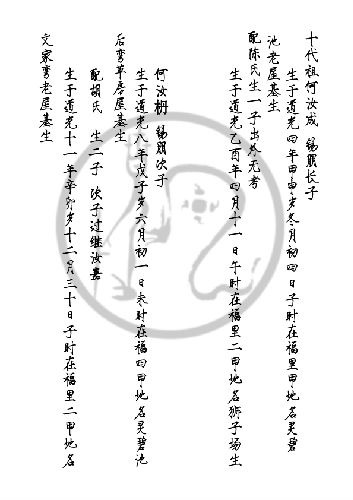 十代祖何汝成 锡爵长子
生于道光四年甲申岁冬月初四日子时在福里甲地名灵碧
池老屋基生
配陈氏生一子出外无考
生于道光乙酉年四月十一日午时在福里二甲地名狮子场生
何汝栅 锡爵次子
生于道光八年戊子岁六月初一日未时在福四甲地名灵碧池
后弯草房屋基生
配胡氏 生二子 次子过继汝嘉
生于道光十一年辛卯岁十二月三十日子时在福里二甲地名
文家弯老屋基生